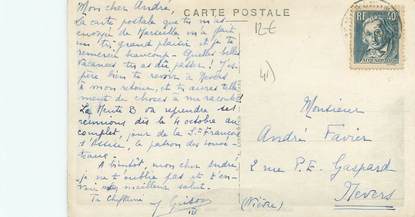 Mon cher André,
La carte postale que tu m'as
envoyée de Marseille m'a fait
un très grand plaisir et je t'en
remercie beaucoup. Quelles belles
vacances tu as dû passer ! J'es-
père bien te revoir à Nevers
à mon retour, et tu auras telle-
ment de choses à me raconter
La Meute B va reprendre ses
réunions dès le 4 octobre au
complet, jour de la St François
d'Assise, le patron des louve-
teaux.
À bientôt, mon cher André,
je ne t'oublie pas et t'en-
voie meilleur salut.
Ta Cheftaine
CARTE POSTALE
12€
RF
Monsieur
André Favier
2 rue P.E. Gaspard
Nevers
(Nièvre)